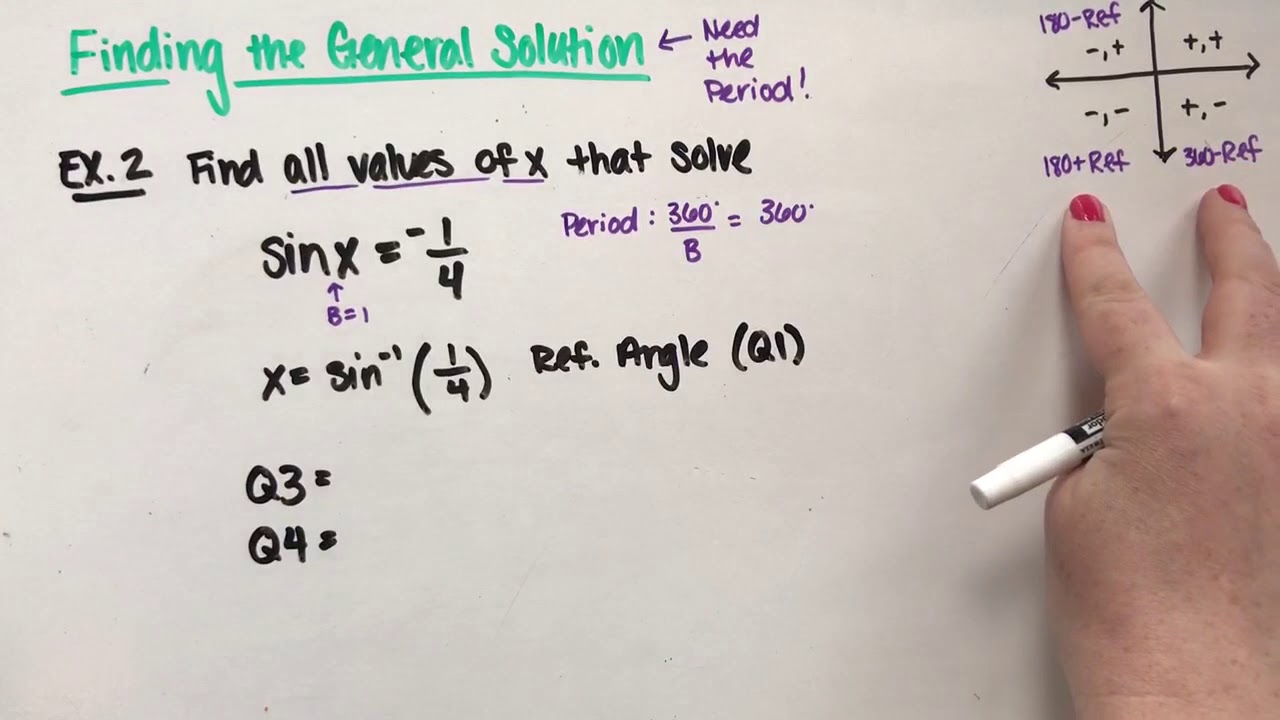 Finding the General Solution ← Need
the
Period!
Ex. 2 Find all values of x that solve
sin x = -1/4
↑
B=1
Period: 360°/B = 360°
x = sin⁻¹(1/4) Ref. Angle (Q1)
Q3 =
Q4 =
180-Ref
-,+ +,+
-,- +,-
180+Ref 360-Ref